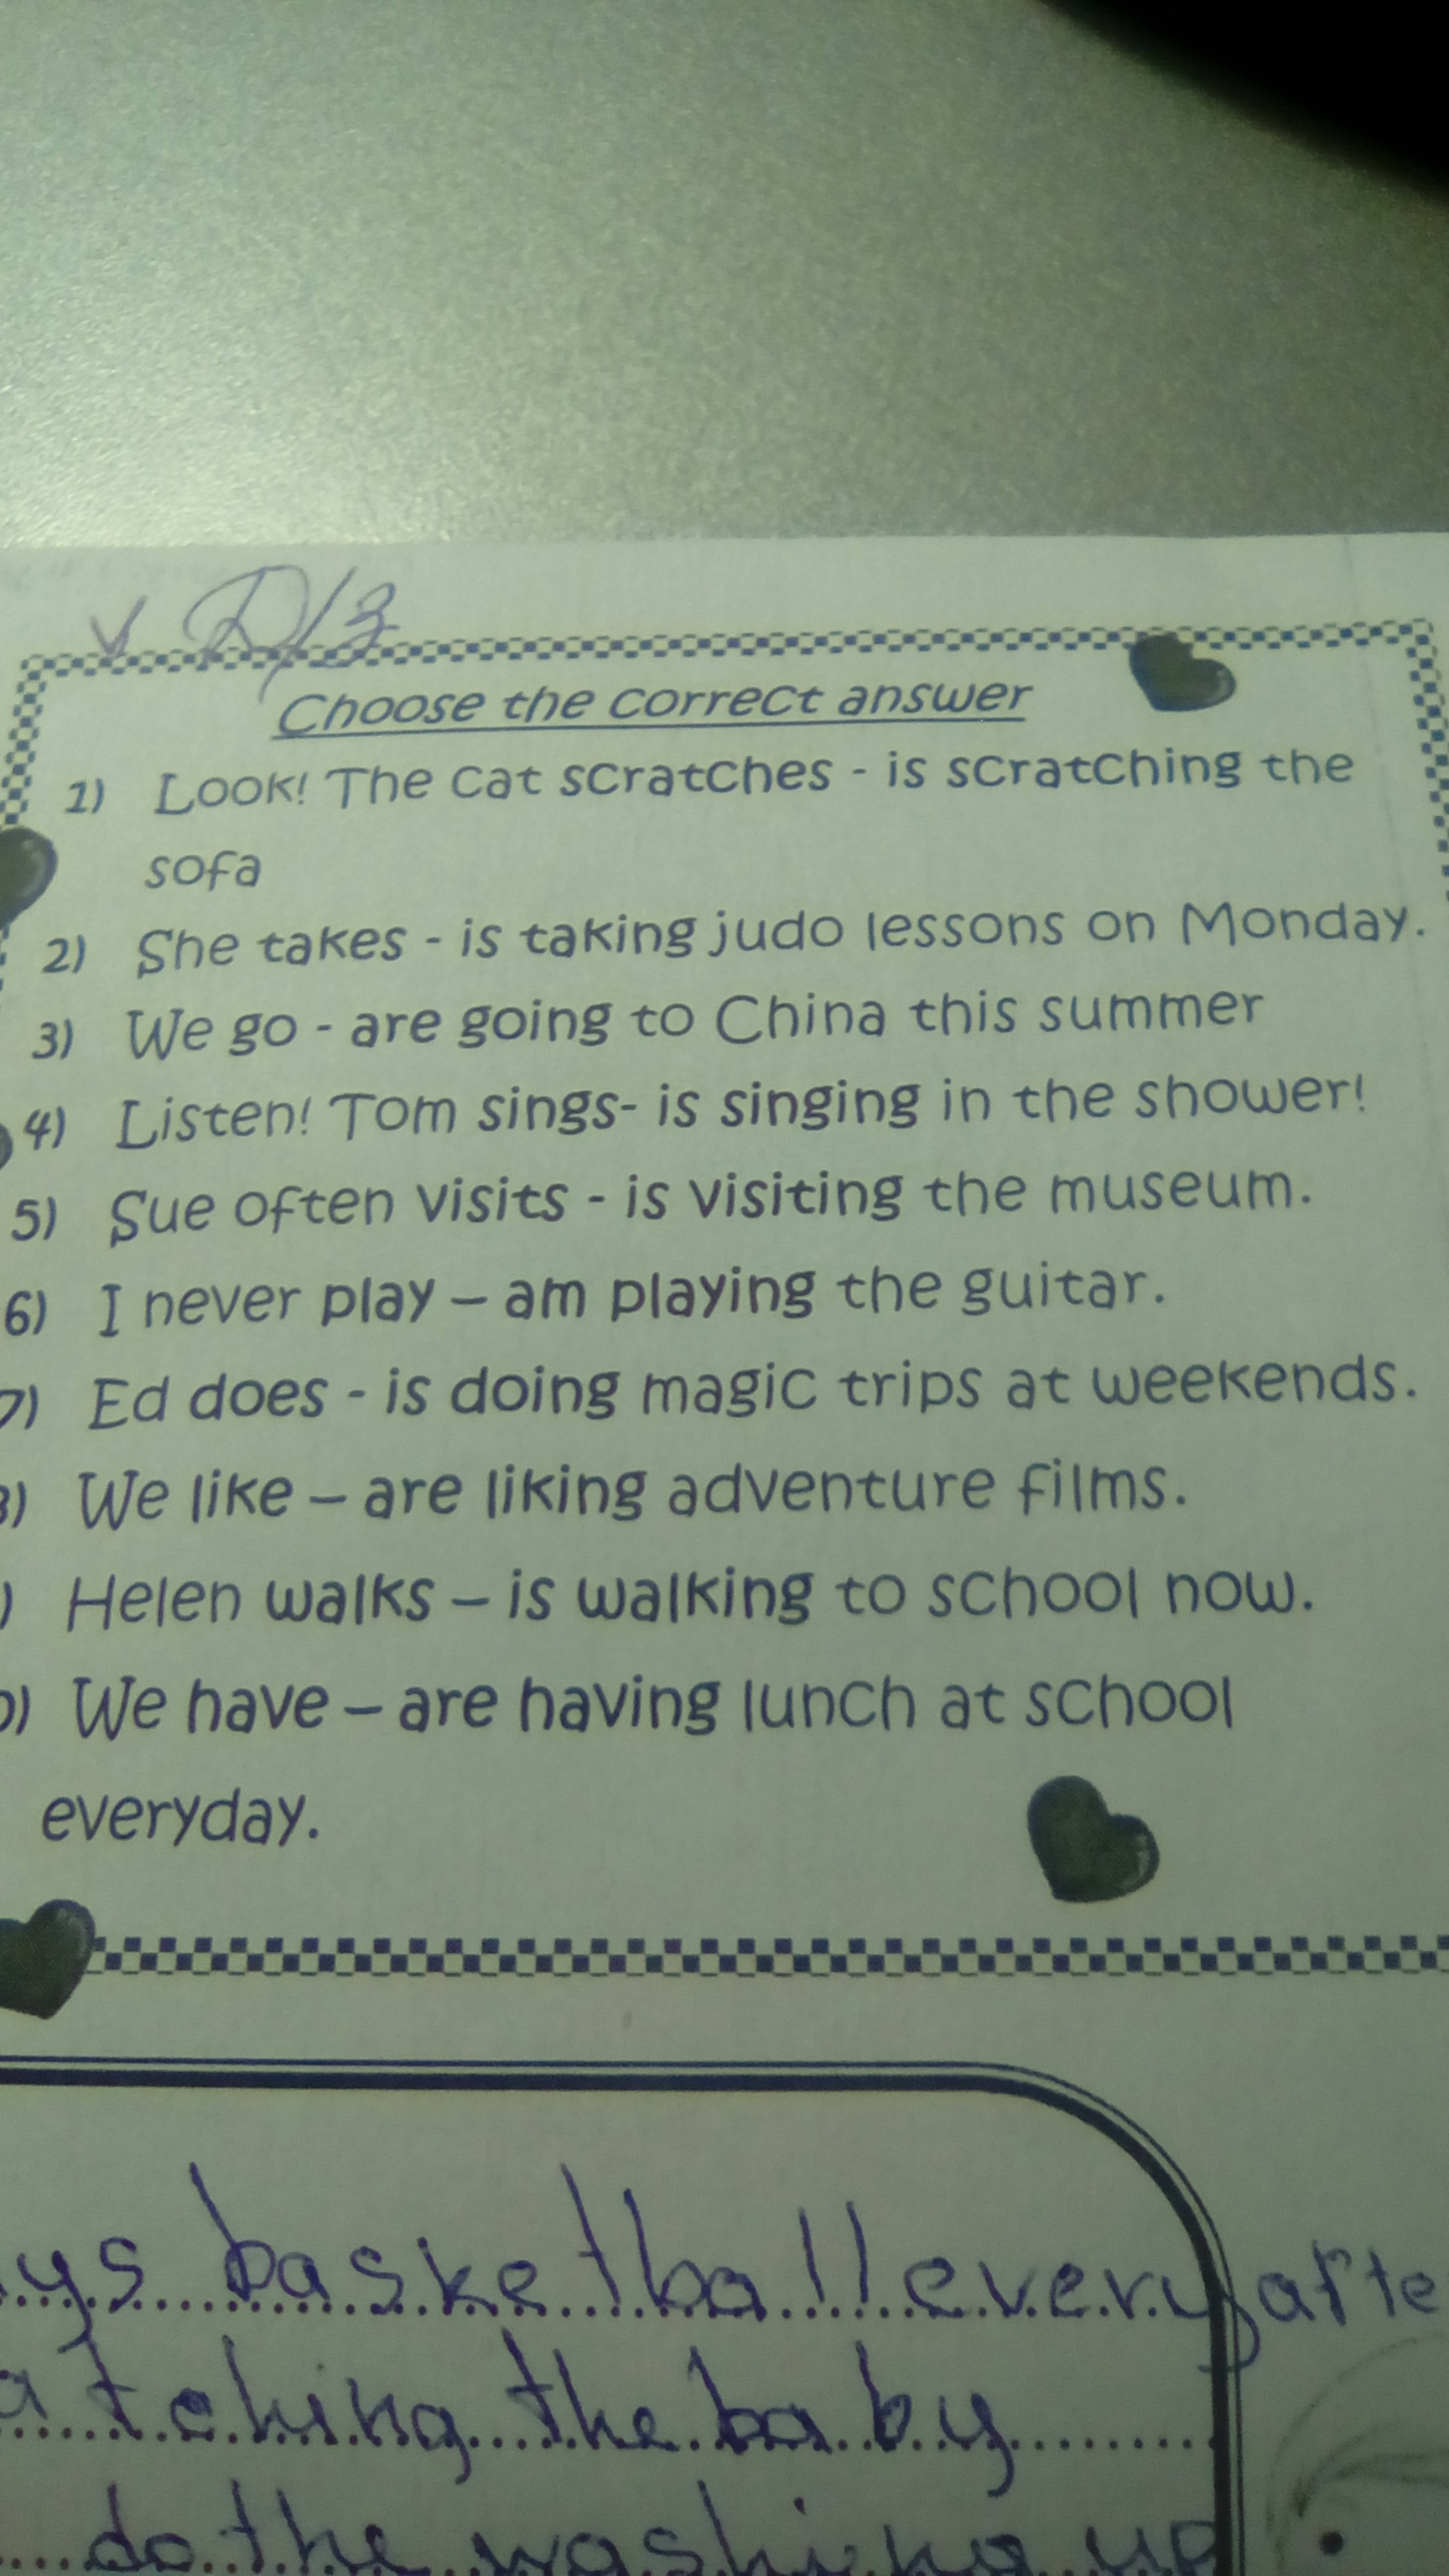 √ Д/з
Choose the correct answer
1) Look! The cat scratches - is scratching the
sofa
2) She takes - is taking judo lessons on Monday.
3) We go - are going to China this summer
4) Listen! Tom sings- is singing in the shower!
5) Sue often visits - is visiting the museum.
6) I never play – am playing the guitar.
7) Ed does - is doing magic trips at weekends.
) We like – are liking adventure films.
) Helen walks – is walking to school now.
) We have – are having lunch at school
everyday.
ys basketball every afte
atching the baby
do the washing up